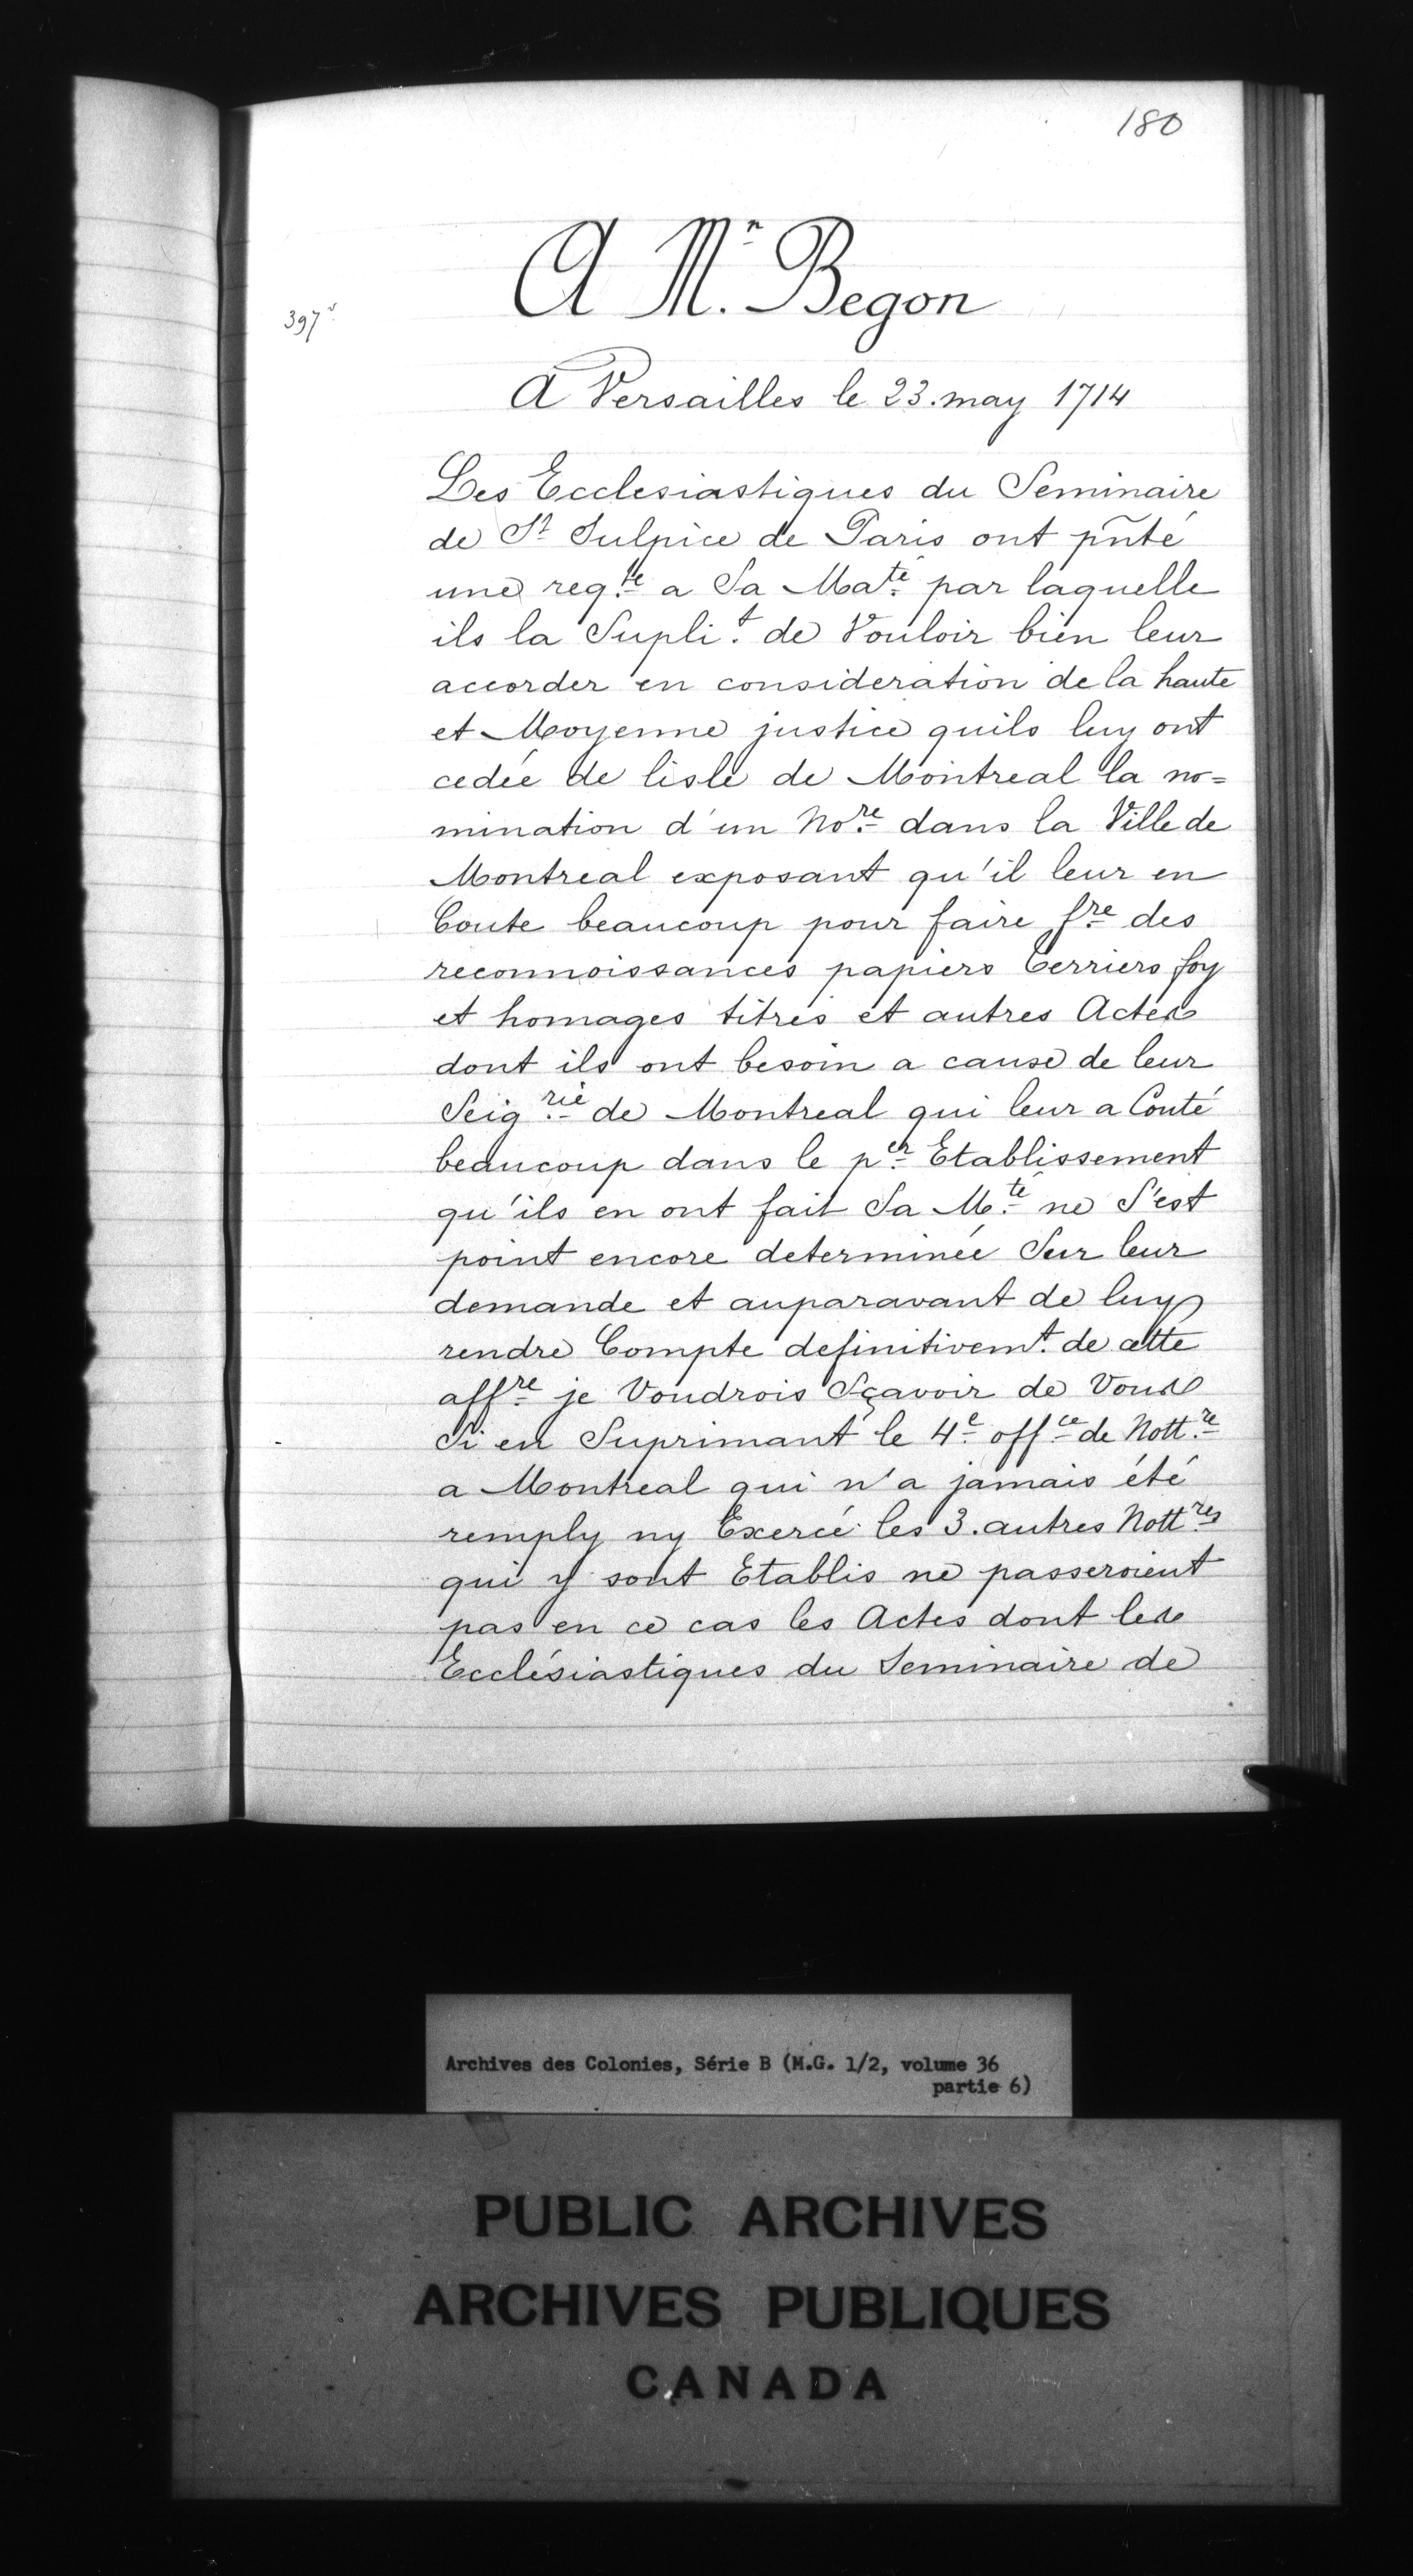 180
A Mr. Begon
397v.
A Versailles le 23. may 1714
Les Ecclesiastiques du Seminaire
de St Sulpice de Paris ont pñté
une reqte. a Sa Maté. par laquelle
ils la Suplit. de Vouloir bien leur
accorder en consideration de la haute
et Moyenne justice quils luy ont
cedée de lisle de Montreal la no=
mination d'un Nore. dans la Ville de
Montreal exposant qu'il leur en
Coute beaucoup pour faire fre. des
reconnoissances papiers terriers foy
et homages titres et autres Actes
dont ils ont besoin a cause de leur
Seigrie. de Montreal qui leur a Couté
beaucoup dans le per. Etablissement
qu'ils en ont fait Sa Mté. ne S'est
point encore determinée Sur leur
demande et auparavant de luy
rendre Compte definitivemt. de cette
affre. je Voudrois Sçavoir de Vous
Si en Suprimant le 4e. offce. de Nottre.
a Montreal qui n'a jamais été
remply ny Exercé les 3. autres Nottres.
qui y sont Etablis ne passeroient
pas en ce cas les Actes dont les
Ecclésiastiques du Seminaire de
Archives des Colonies, Série B (M.G. 1/2, volume 36
partie 6)
PUBLIC ARCHIVES
ARCHIVES PUBLIQUES
CANADA